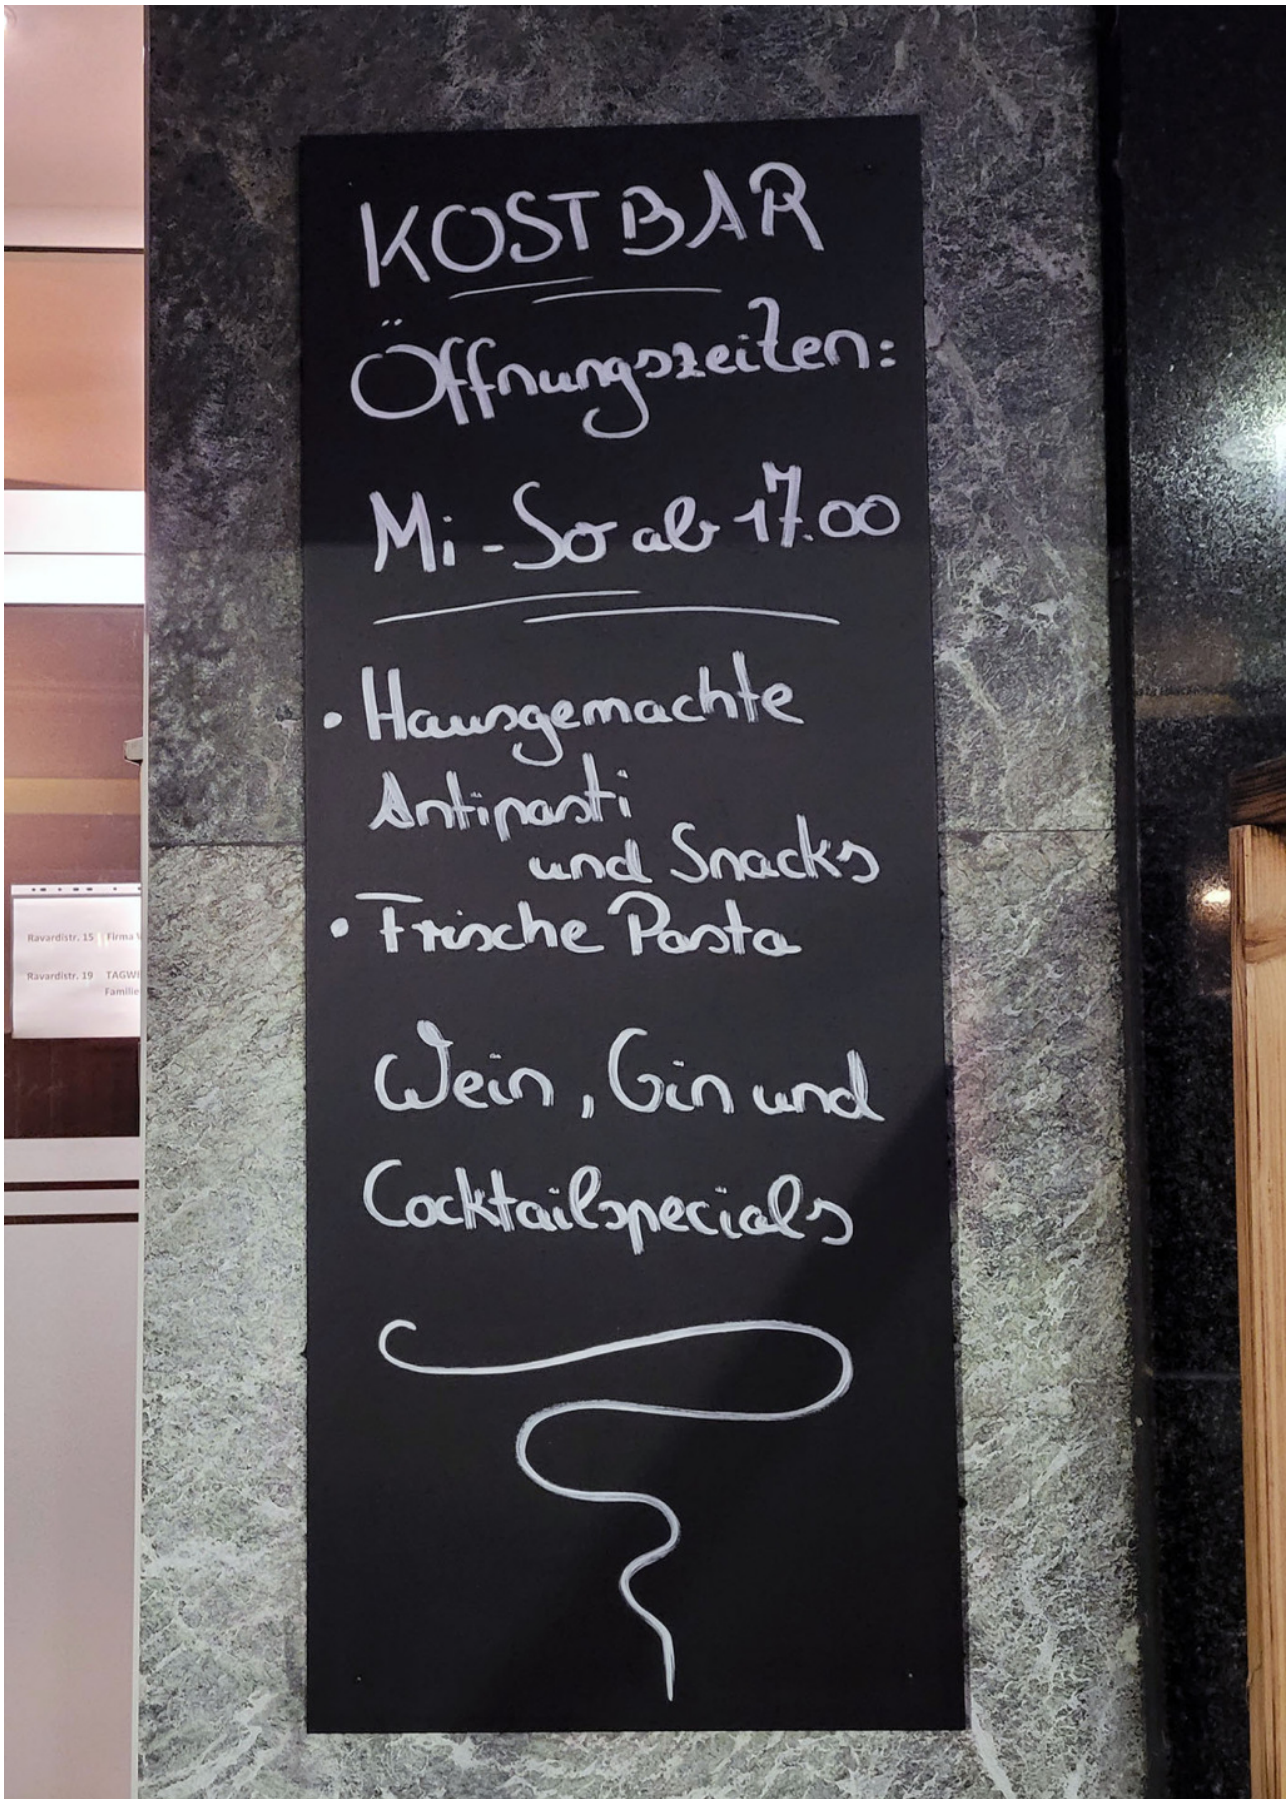 KOSTBAR
Öffnungszeiten:
Mi - So ab 17.00
• Hausgemachte
Antipasti
und Snacks
• Frische Pasta
Wein, Gin und
Cocktailspecials
Ravardistr. 15 Firma
Ravardistr. 19 TAGW
Familie